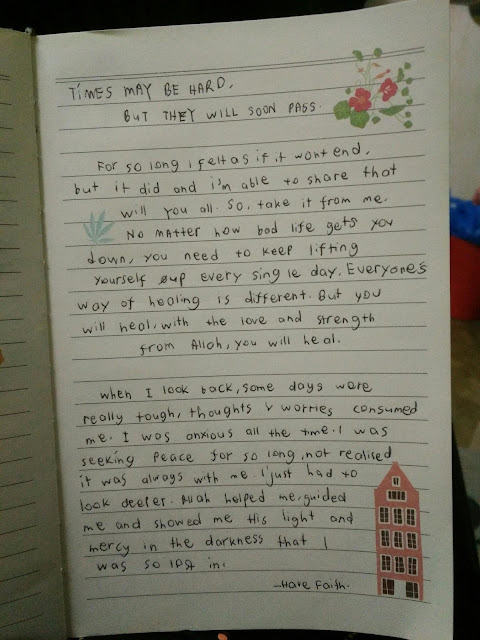 TIMES MAY BE HARD,
BUT THEY WILL SOON PASS.
For so long i felt as if it wont end,
but it did and i'm able to share that
will you all. So, take it from me.
No matter how bad life gets you
down, you need to keep lifting
yourself up every single day. Everyone's
way of healing is different. But you
will heal, with the love and strength
from Allah, you will heal.
when I look back, some days were
really tough, thoughts & worries consumed
me. I was anxious all the time. I was
seeking peace for so long, not realised
it was always with me. I just had to
look deeper. Allah helped me, guided
me and showed me His light and
mercy in the darkness that I
was so lost in.
-Have Faith.